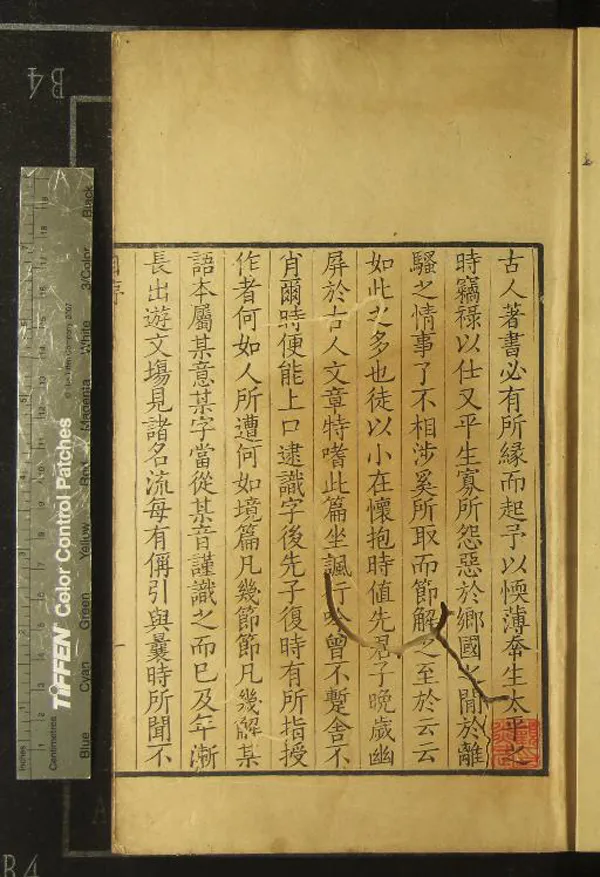 古人著書必有所緣而起予以愞薄奉生太平之
時竊祿以仕又平生寡所怨惡於鄉國之間於離
騷之情事了不相涉奚所取而節解之至於云云
如此之多也徒以小在懷抱時値先君子晩歲幽
屏於古人文章特嗜此篇坐諷行吟曾不蹔舍不
肖爾時便能上口逮識字後先子復時有所指授
作者何如人所遭何如境篇凡幾節節凡幾解某
語本屬某意某字當從某音謹識之而已及年漸
長出遊文塲見諸名流每有偁引與曩時所聞不
B4
Inches
Centimetres
TIFFEN® Color Control Patches
© The Tiffen Company, 2007
Blue Cyan Green Yellow Red Magenta White 3/Color Black
B4